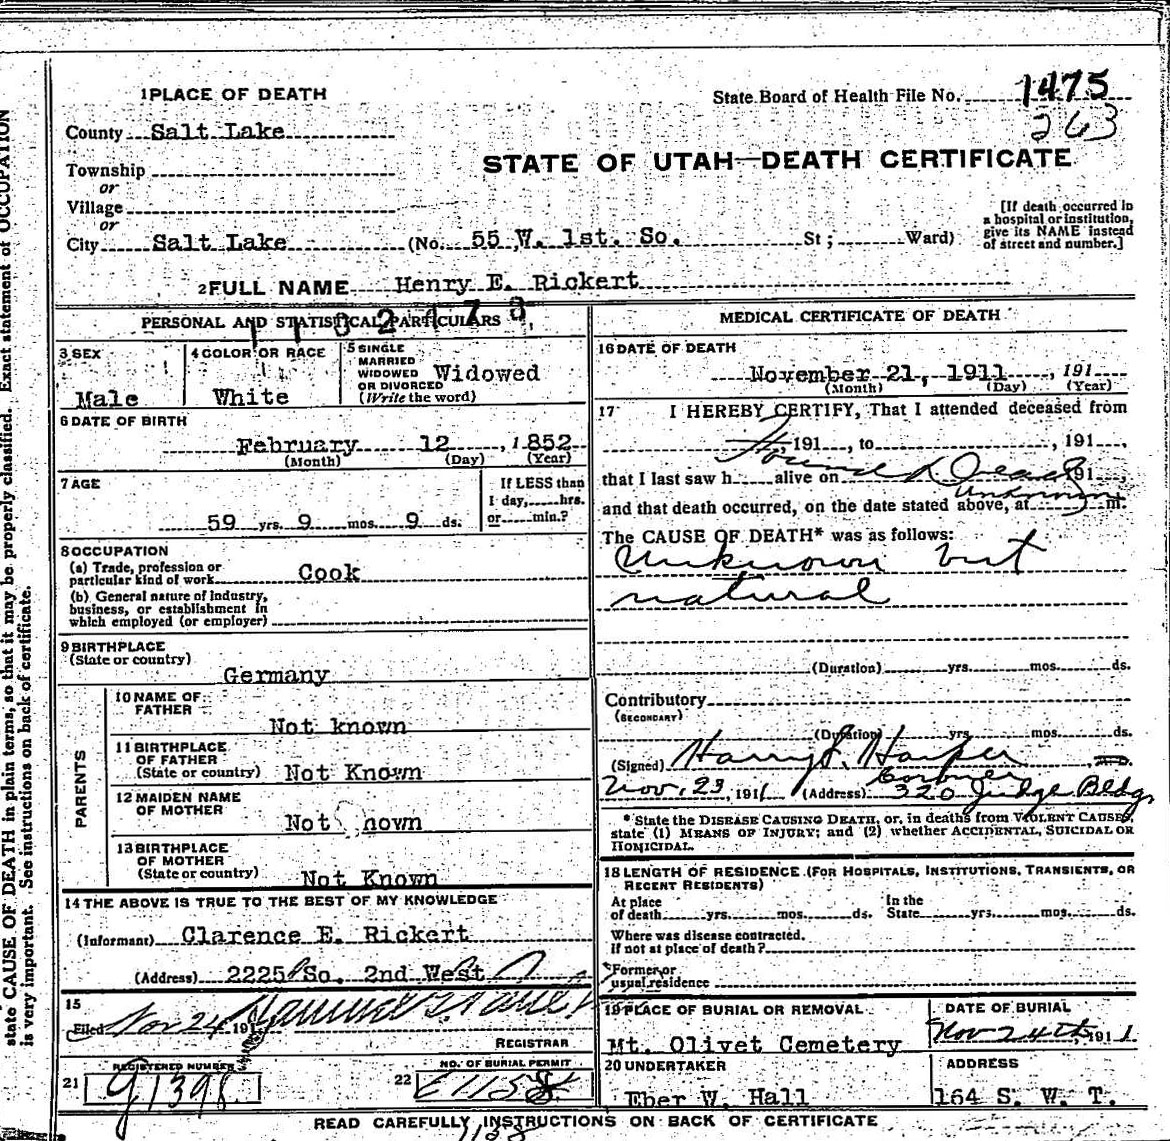 1475
263
State Board of Health File No.
STATE OF UTAH—DEATH CERTIFICATE
1 PLACE OF DEATH
County Salt Lake
Township
or
Village
or
City Salt Lake (No. 55 W. 1st. So. St; Ward)
[If death occurred in
a hospital or institution,
give its NAME instead
of street and number.]
2 FULL NAME Henry E. Rickert
PERSONAL AND STATISTICAL PARTICULARS
3 SEX
Male
4 COLOR OR RACE
White
5 SINGLE
MARRIED
WIDOWED
OR DIVORCED
(Write the word)
Widowed
6 DATE OF BIRTH
February 12, 1852
(Month) (Day) (Year)
7 AGE
59 yrs. 9 mos. 9 ds.
If LESS than
1 day, hrs.
or min.?
8 OCCUPATION
(a) Trade, profession or
particular kind of work Cook
(b) General nature of industry,
business, or establishment in
which employed (or employer)
9 BIRTHPLACE
(State or country)
Germany
PARENTS
10 NAME OF
FATHER
Not known
11 BIRTHPLACE
OF FATHER
(State or country) Not Known
12 MAIDEN NAME
OF MOTHER
Not nown
13 BIRTHPLACE
OF MOTHER
(State or country) Not Known
14 THE ABOVE IS TRUE TO THE BEST OF MY KNOWLEDGE
(Informant) Clarence E. Rickert
(Address) 2225 So. 2nd West
15
Filed Nov 24 191
REGISTRAR
REGISTERED NUMBER
21
NO. OF BURIAL PERMIT
22
MEDICAL CERTIFICATE OF DEATH
16 DATE OF DEATH
November 21, 1911, 191
(Month) (Day) (Year)
17 I HEREBY CERTIFY, That I attended deceased from
191 , to , 191 ,
Found Dead
that I last saw h alive on 191 ,
Unknown
and that death occurred, on the date stated above, at m.
The CAUSE OF DEATH* was as follows:
Unknown but
natural
(Duration) yrs. mos. ds.
Contributory
(SECONDARY)
(Duration) yrs. mos. ds.
(Signed) Harry S. Harper
Coroner
Nov. 23, 1911 (Address) 320 Judge Bldg
* State the DISEASE CAUSING DEATH, or, in deaths from VIOLENT CAUSES,
state (1) MEANS OF INJURY; and (2) whether ACCIDENTAL, SUICIDAL OR
HOMICIDAL.
18 LENGTH OF RESIDENCE (FOR HOSPITALS, INSTITUTIONS, TRANSIENTS, OR
RECENT RESIDENTS)
At place In the
of death yrs. mos. ds. State yrs. mos. ds.
Where was disease contracted.
if not at place of death?
Former or
usual residence
19 PLACE OF BURIAL OR REMOVAL
Mt. Olivet Cemetery
DATE OF BURIAL
Nov 24th, 1911
20 UNDERTAKER
Eber W. Hall
ADDRESS
164 S. W. T.
READ CAREFULLY INSTRUCTIONS ON BACK OF CERTIFICATE
state CAUSE OF DEATH in plain terms, so that it may be properly classified. Exact statement of OCCUPATION
is very important. See instructions on back of certificate.